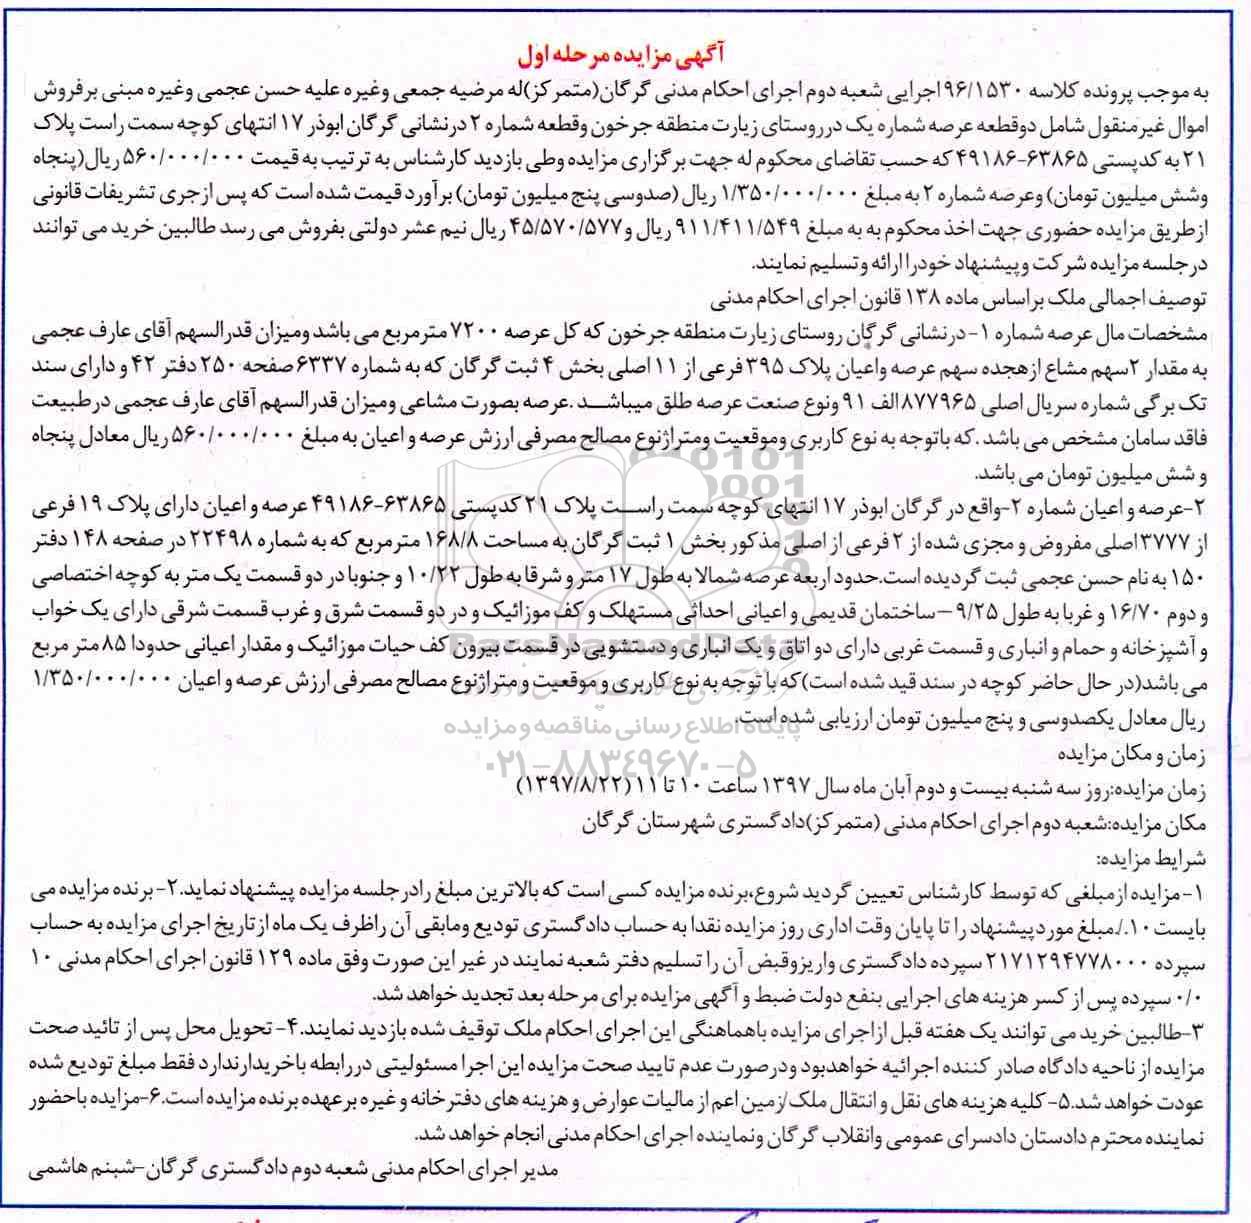 آگهی مزایده مرحله اول
به موجب پرونده کلاسه ۹۶/۱۵۳۰ اجرایی شعبه دوم اجرای احکام مدنی گرگان(متمرکز)له مرضیه جمعی وغیره علیه حسن عجمی وغیره مبنی برفروش
اموال غیرمنقول شامل دوقطعه عرصه شماره یک درروستای زیارت منطقه جرخون وقطعه شماره ۲ درنشانی گرگان ابوذر ۱۷ انتهای کوچه سمت راست پلاک
۲۱ به کدپستی ۶۳۸۶۵-۴۹۱۸۶ که حسب تقاضای محکوم له جهت برگزاری مزایده وطی بازدید کارشناس به ترتیب به قیمت ۵۶۰/۰۰۰/۰۰۰ ریال(پنجاه
وشش میلیون تومان) وعرصه شماره ۲ به مبلغ ۱/۳۵۰/۰۰۰/۰۰۰ ریال (صدوسی پنج میلیون تومان) برآورد قیمت شده است که پس ازجری تشریفات قانونی
ازطریق مزایده حضوری جهت اخذ محکوم به به مبلغ ۹۱۱/۴۱۱/۵۴۹ ریال و۴۵/۵۷۰/۵۷۷ ریال نیم عشر دولتی بفروش می رسد طالبین خرید می توانند
درجلسه مزایده شرکت وپیشنهاد خودرا ارائه وتسلیم نمایند.
توصیف اجمالی ملک براساس ماده ۱۳۸ قانون اجرای احکام مدنی
مشخصات مال عرصه شماره ۱-درنشانی گرگان روستای زیارت منطقه جرخون که کل عرصه ۷۲۰۰ مترمربع می باشد ومیزان قدرالسهم آقای عارف عجمی
به مقدار ۲سهم مشاع ازهجده سهم عرصه واعیان پلاک ۳۹۵ فرعی از ۱۱ اصلی بخش ۴ ثبت گرگان که به شماره ۶۳۳۷ صفحه ۲۵۰ دفتر ۴۲ و دارای سند
تک برگی شماره سریال اصلی ۸۷۷۹۶۵ الف ۹۱ ونوع صنعت عرصه طلق میباشد .عرصه بصورت مشاعی ومیزان قدرالسهم آقای عارف عجمی درطبیعت
فاقد سامان مشخص می باشد .که باتوجه به نوع کاربری وموقعیت ومتراژنوع مصالح مصرفی ارزش عرصه و اعیان به مبلغ ۵۶۰/۰۰۰/۰۰۰ ریال معادل پنجاه
و شش میلیون تومان می باشد.
۲-عرصه و اعیان شماره ۲-واقع در گرگان ابوذر ۱۷ انتهای کوچه سمت راست پلاک ۲۱ کدپستی ۶۳۸۶۵-۴۹۱۸۶ عرصه و اعیان دارای پلاک ۱۹ فرعی
از ۳۷۷۷ اصلی مفروض و مجزی شده از ۲ فرعی از اصلی مذکور بخش ۱ ثبت گرگان به مساحت ۱۶۸/۸ مترمربع که به شماره ۲۲۴۹۸ در صفحه ۱۴۸ دفتر
۱۵۰ به نام حسن عجمی ثبت گردیده است.حدود اربعه عرصه شمالا به طول ۱۷ متر و شرقا به طول ۱۰/۲۲ و جنوبا در دو قسمت یک متر به کوچه اختصاصی
و دوم ۱۶/۷۰ و غربا به طول ۹/۲۵ -ساختمان قدیمی و اعیانی احداثی مستهلک و کف موزائیک و در دو قسمت شرق و غرب قسمت شرقی دارای یک خواب
و آشپزخانه و حمام و انباری و قسمت غربی دارای دو اتاق و یک انباری و دستشویی در قسمت بیرون کف حیات موزائیک و مقدار اعیانی حدودا ۸۵ متر مربع
می باشد(در حال حاضر کوچه در سند قید شده است)که با توجه به نوع کاربری و موقعیت و متراژنوع مصالح مصرفی ارزش عرصه و اعیان ۱/۳۵۰/۰۰۰/۰۰۰
ریال معادل یکصدوسی و پنج میلیون تومان ارزیابی شده است.
پایگاه اطلاع رسانی مناقصه و مزایده
زمان و مکان مزایده
۰۲۱-۸۸۳۴۹۶۷۰-۵
زمان مزایده:روز سه شنبه بیست و دوم آبان ماه سال ۱۳۹۷ ساعت ۱۰ تا ۱۱ (۱۳۹۷/۸/۲۲)
مکان مزایده:شعبه دوم اجرای احکام مدنی (متمرکز)دادگستری شهرستان گرگان
شرایط مزایده:
۱-مزایده ازمبلغی که توسط کارشناس تعیین گردید شروع،برنده مزایده کسی است که بالاترین مبلغ رادرجلسه مزایده پیشنهاد نماید.۲-برنده مزایده می
بایست ۱۰./.مبلغ موردپیشنهاد را تا پایان وقت اداری روز مزایده نقدا به حساب دادگستری تودیع ومابقی آن راظرف یک ماه ازتاریخ اجرای مزایده به حساب
سپرده ۲۱۷۱۲۹۴۷۷۸۰۰۰ سپرده دادگستری واریزوقبض آن را تسلیم دفتر شعبه نمایند در غیر این صورت وفق ماده ۱۲۹ قانون اجرای احکام مدنی ۱۰
۰/۰ سپرده پس از کسر هزینه های اجرایی بنفع دولت ضبط و آگهی مزایده برای مرحله بعد تجدید خواهد شد.
۳-طالبین خرید می توانند یک هفته قبل ازاجرای مزایده باهماهنگی این اجرای احکام ملک توقیف شده بازدید نمایند.۴- تحویل محل پس از تائید صحت
مزایده از ناحیه دادگاه صادر کننده اجرائیه خواهدبود ودرصورت عدم تایید صحت مزایده این اجرا مسئولیتی دررابطه باخریدارندارد فقط مبلغ تودیع شده
عودت خواهد شد.۵-کلیه هزینه های نقل و انتقال ملک/زمین اعم از مالیات عوارض و هزینه های دفترخانه و غیره برعهده برنده مزایده است.۶-مزایده باحضور
نماینده محترم دادستان دادسرای عمومی وانقلاب گرگان ونماینده اجرای احکام مدنی انجام خواهد شد.
مدیر اجرای احکام مدنی شعبه دوم دادگستری گرگان-شبنم هاشمی